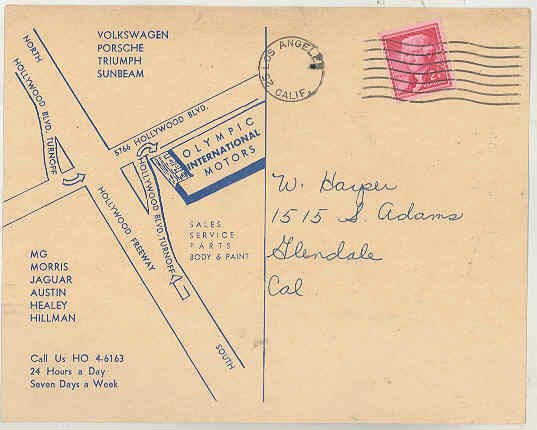 VOLKSWAGEN
PORSCHE
TRIUMPH
SUNBEAM
NORTH
HOLLYWOOD BLVD. TURNOFF
5766 HOLLYWOOD BLVD.
OLYMPIC
INTERNATIONAL
MOTORS
HOLLYWOOD BLVD. TURNOFF
HOLLYWOOD FREEWAY
SALES
SERVICE
PARTS
BODY & PAINT
SOUTH
MG
MORRIS
JAGUAR
AUSTIN
HEALEY
HILLMAN
Call Us HO 4-6163
24 Hours a Day
Seven Days a Week
LOS ANGELES
CALIF.
W. Harper
1515 S. Adams
Glendale
Cal.